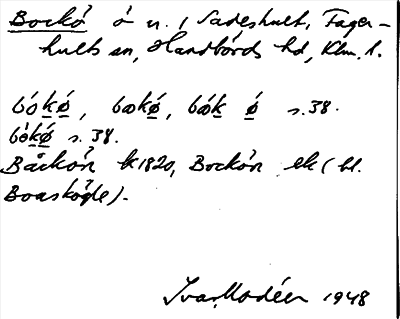 Bockö ö n. i Sadeshult, Fager-
hults sn, Handbörds hd, Klm. l.
bókǿ, bokǿ, bók ǿ s. 38.
bòkǿ s. 38.
Båckön k 1820, Bockön ek (bl.
Boaskögle).
Ivar Modéer 1948